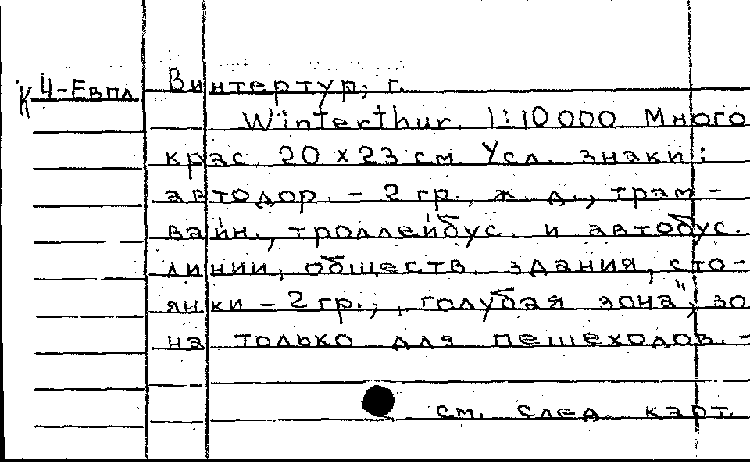 К Ч-Евпл
Винтертур, г.
Winterthur. 1:10000 Много
крас. 20 x 23 см. Усл. знаки:
автодор. - 2 гр., ж. д., трам-
вайн., троллейбус. и автобус.
линии, обществ. здания, сто-
янки - 2 гр.; „голубая зона"; зо
на только для пешеходов. -
см. след. карт.